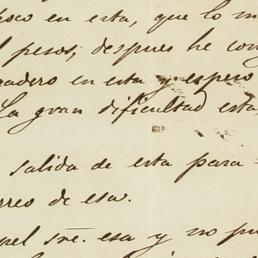 poco en esta, que lo m
l pesos, despues he con
radero en esta y espero
La gran dificultad esta,
salida de esta para
rreo de esa.
pel sre. esa y no pu